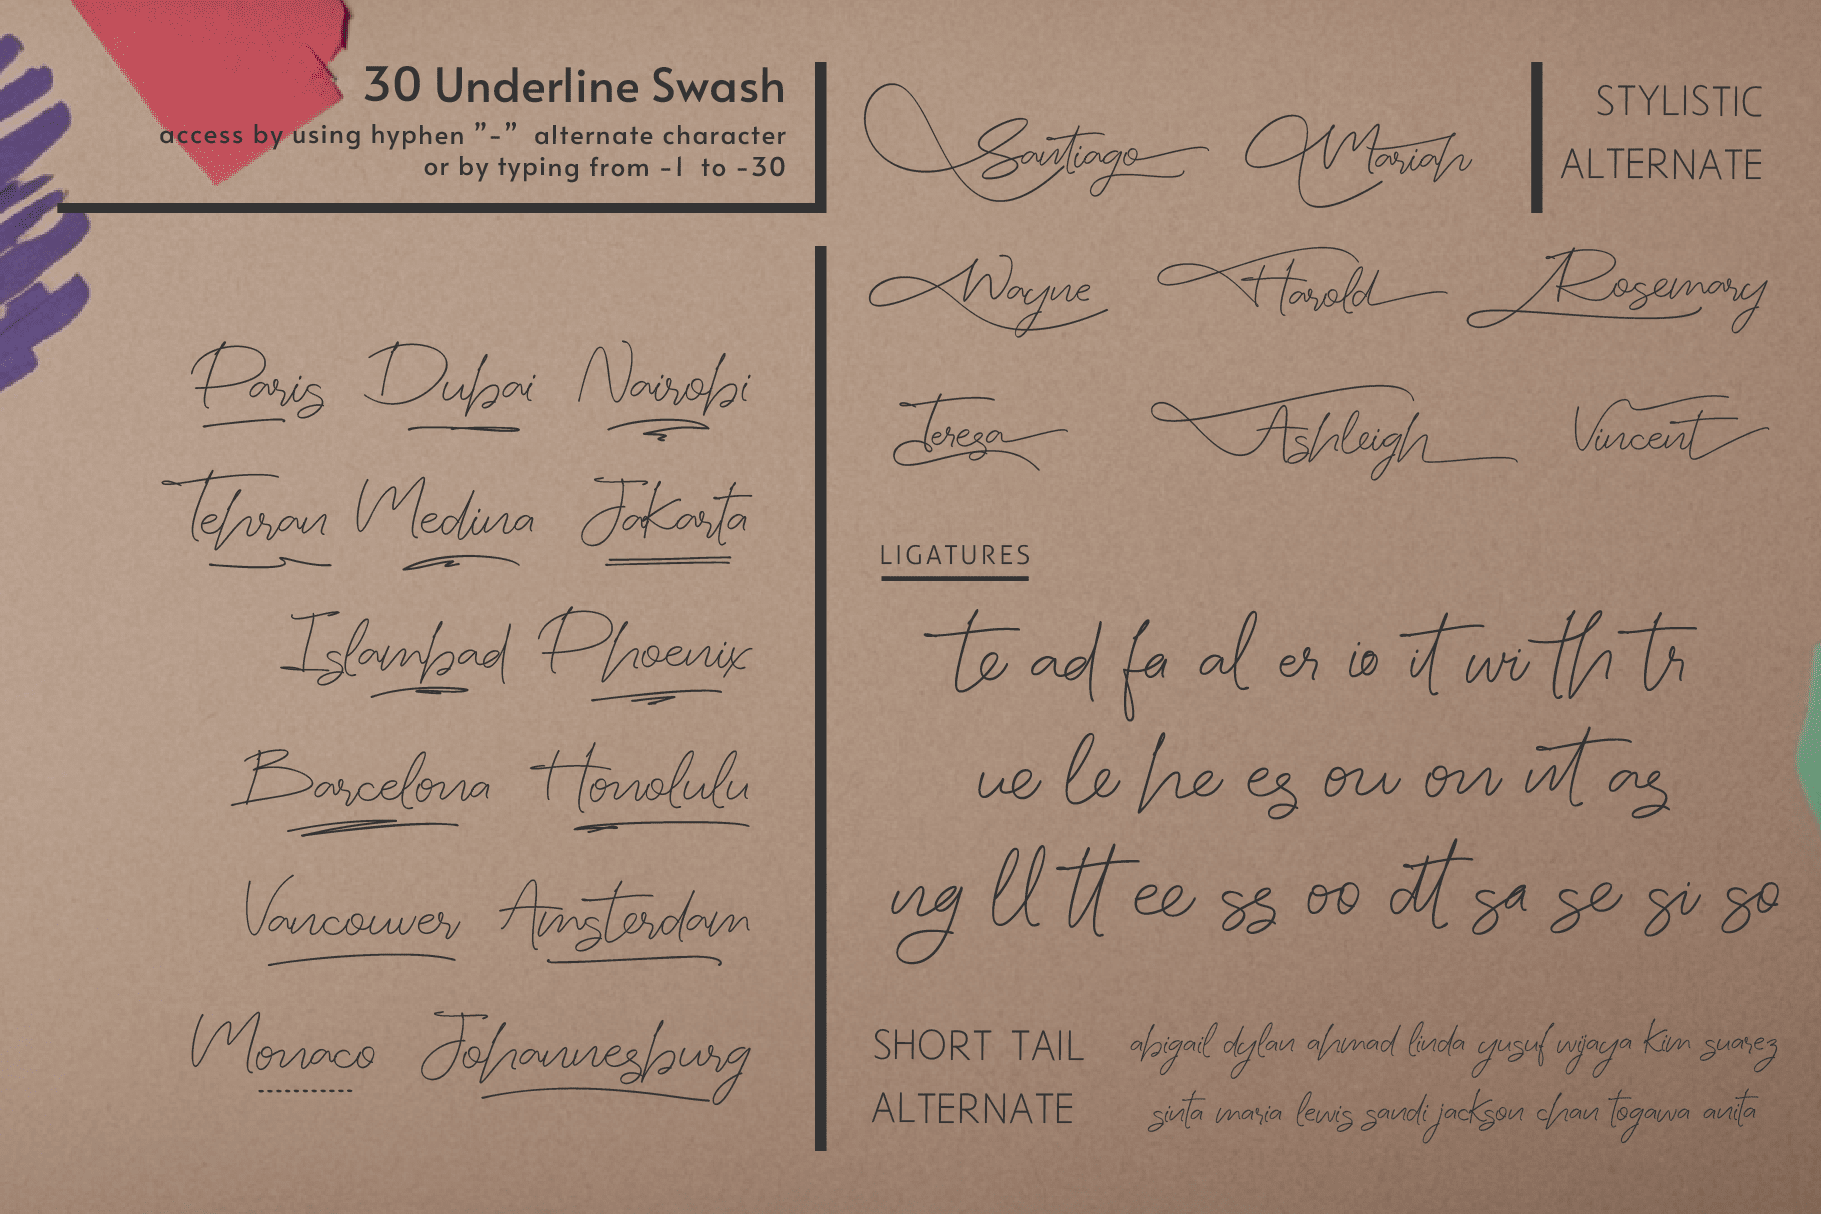 30 Underline Swash
access by using hyphen ”-” alternate character
or by typing from -1 to -30
Paris Dubai Nairobi
Tehran Medina Jakarta
Islambad Phoenix
Barcelona Honolulu
Vancouver Amsterdam
Monaco Johannesburg
STYLISTIC
ALTERNATE
Santiago Mariah
Wayne Harold Rosemary
Teresa Ashleigh Vincent
LIGATURES
te ad fa al er io it wi th tr
ve le he es ou on nt as
ng ll tt ee ss oo dt sa se si so
SHORT TAIL
ALTERNATE
abigail dylan ahmad linda yusuf wijaya kim suarez
sinta maria lewis sandi jackson chan togawa anita